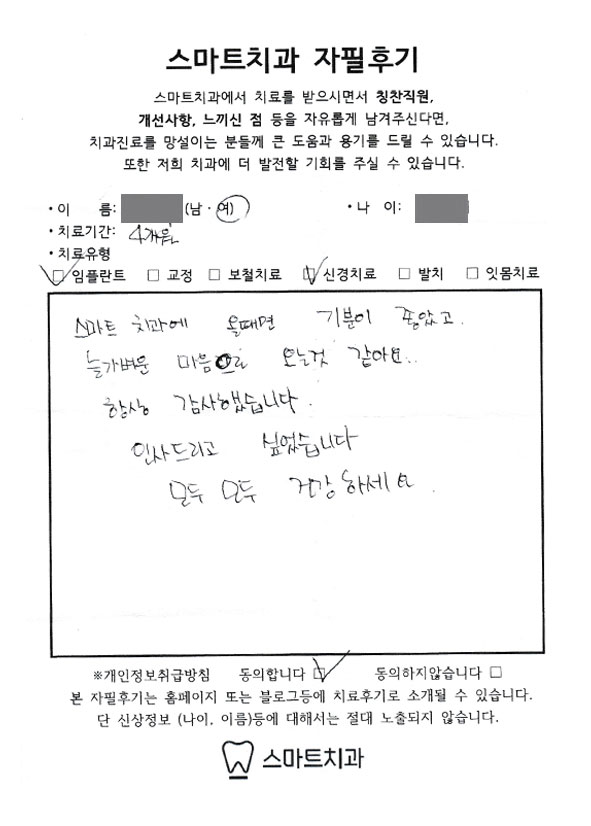 스마트치과 자필후기
스마트치과에서 치료를 받으시면서 칭찬직원,
개선사항, 느끼신 점 등을 자유롭게 남겨주신다면,
치과진료를 망설이는 분들께 큰 도움과 용기를 드릴 수 있습니다.
또한 저희 치과에 더 발전할 기회를 주실 수 있습니다.
• 이 름: (남 · 여) • 나 이:
• 치료기간: 4개월
• 치료유형
☑ 임플란트 □ 교정 □ 보철치료 ☑ 신경치료 □ 발치 □ 잇몸치료
스마트 치과에 올때면 기분이 좋았고.
늘가벼운 마음으로 오는것 같아요..
항상 감사했습니다.
인사드리고 싶었습니다
모두 모두 건강하세요.
※개인정보취급방침 동의합니다 ☑ 동의하지않습니다 □
본 자필후기는 홈페이지 또는 블로그등에 치료후기로 소개될 수 있습니다.
단 신상정보 (나이, 이름)등에 대해서는 절대 노출되지 않습니다.
스마트치과